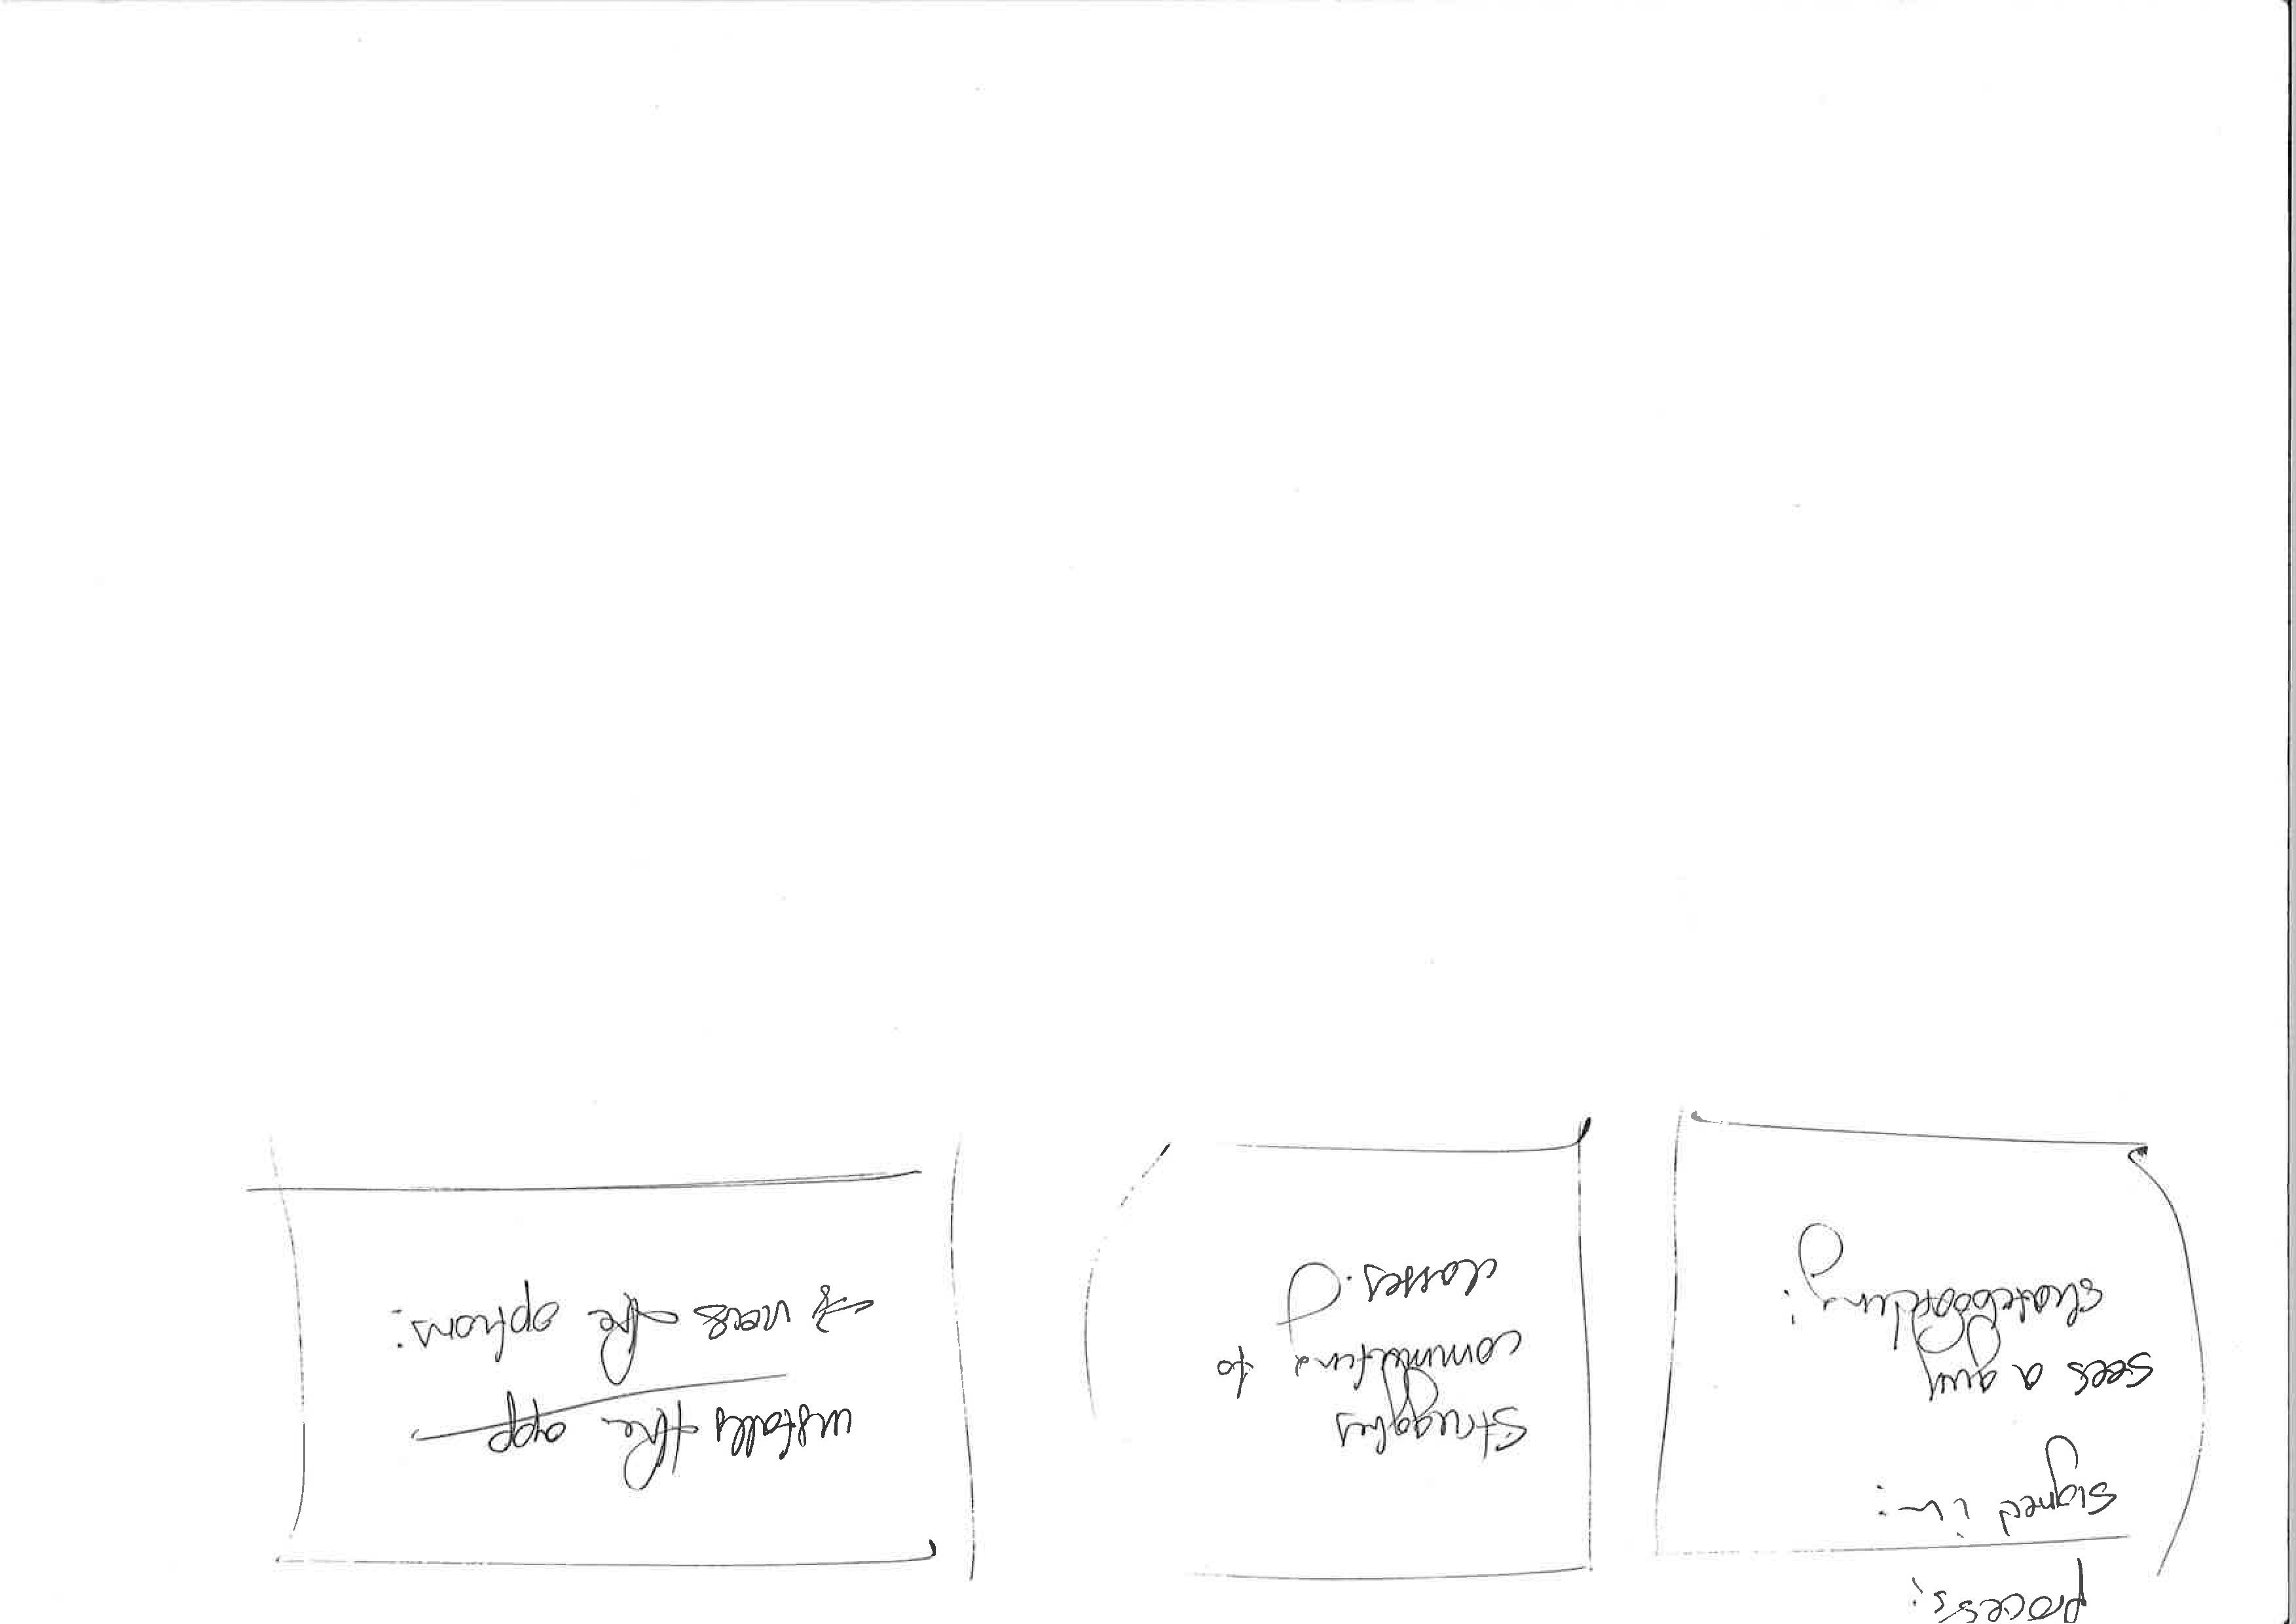 process:
signed in:
sees a gun
skateboarding:
struggling
committing to
classes.
installs the app
→ uses the options: